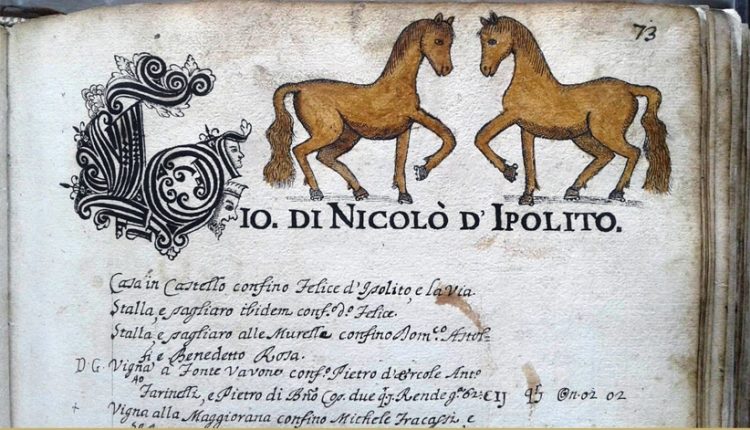 73
GIO. DI NICOLÒ D'IPOLITO.
Casa in Castello confino Felice d'Ipolito, e la Via
Stalla, e pagliaro ibidem conf.º d.º Felice.
Stalla, e pagliaro alle Murelle confino Dom.co Astol-
fi e Benedetto Rosa.
D G Vigna a Fonte Vavone conf.º Pietro d'Ercole Ant.º
Farinelli, e Pietro di Bño due Rende 02 02
+ Vigna alla Maggiorana confino Michele Fracassi, e